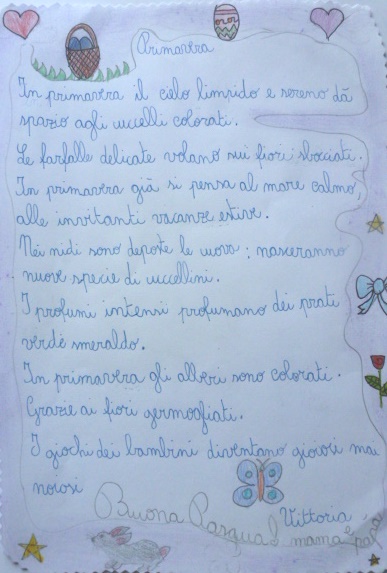 Primavera
In primavera il cielo limpido e sereno dà
spazio agli uccelli colorati.
Le farfalle delicate volano sui fiori sbocciati.
In primavera già si pensa al mare calmo,
alle invitanti vacanze estive.
Nei nidi sono deposte le uova: nasceranno
nuove specie di uccellini.
I profumi intensi profumano dei prati
verde smeraldo.
In primavera gli alberi sono colorati.
Grazie ai fiori germogliati.
I giochi dei bambini diventano giocosi mai
noiosi
Buona Pasqua!
Vittoria
mamma e papà